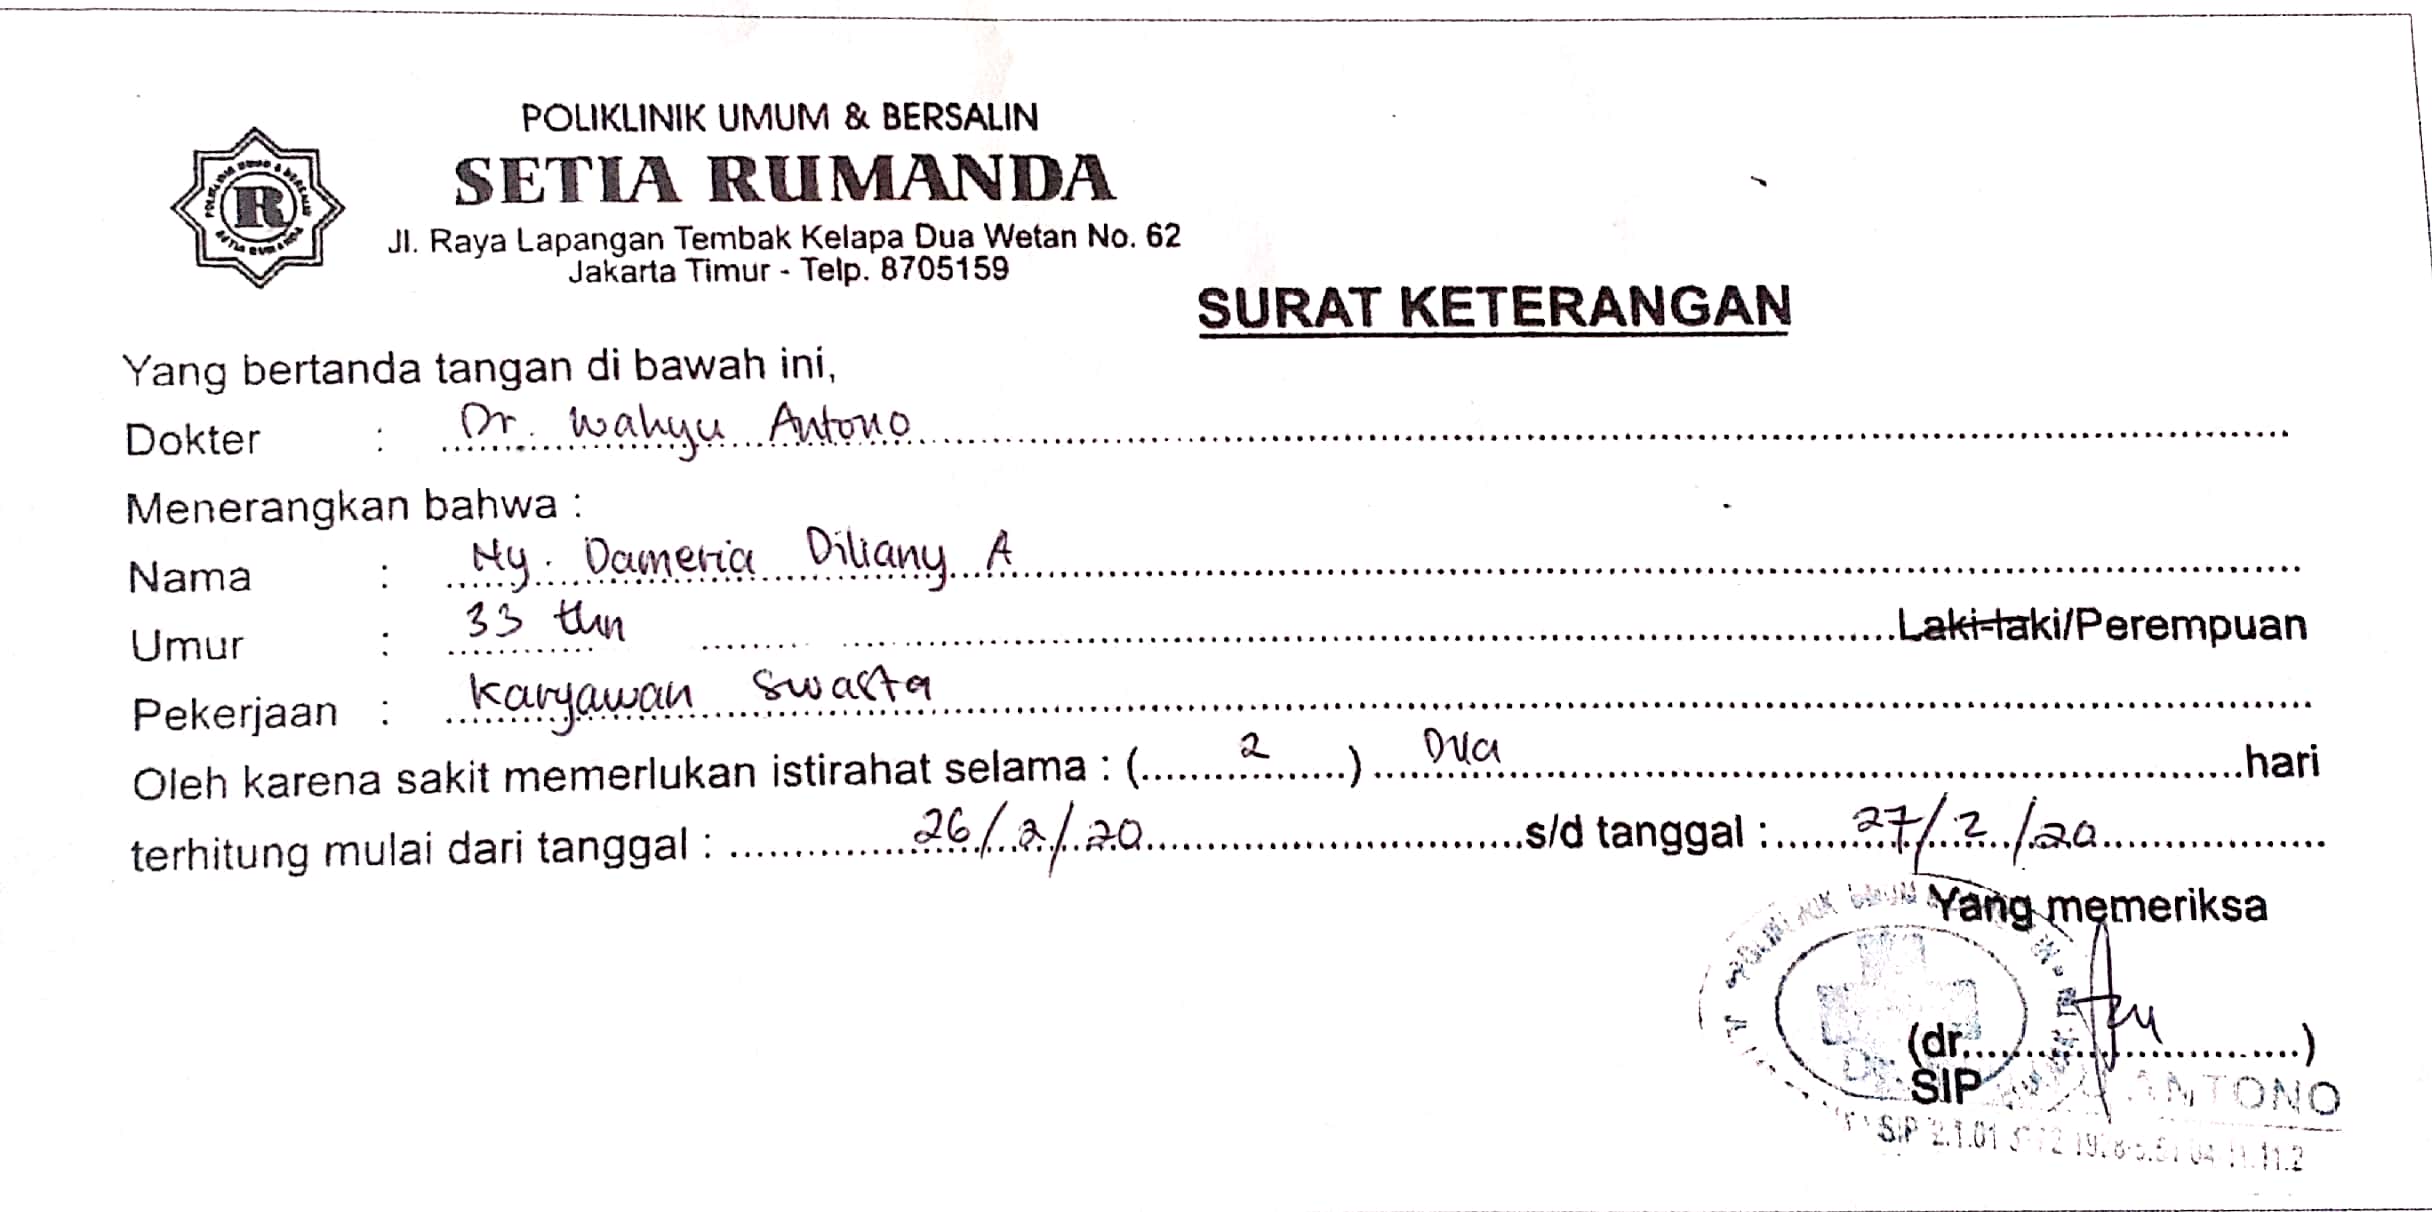 POLIKLINIK UMUM & BERSALIN
SETIA RUMANDA
Jl. Raya Lapangan Tembak Kelapa Dua Wetan No. 62
Jakarta Timur - Telp. 8705159
R
SURAT KETERANGAN
Yang bertanda tangan di bawah ini,
Dokter : Dr. Wahyu Antono
Menerangkan bahwa :
Nama : Ny. Dameria Diliany A
Umur : 33 thn Laki-laki/Perempuan
Pekerjaan : Karyawan Swasta
Oleh karena sakit memerlukan istirahat selama : ( 2 ) Dua hari
terhitung mulai dari tanggal : 26/2/20 s/d tanggal : 27/2/20
Yang memeriksa
(dr. )
SIP
ANTONO
SIP 2.1.01